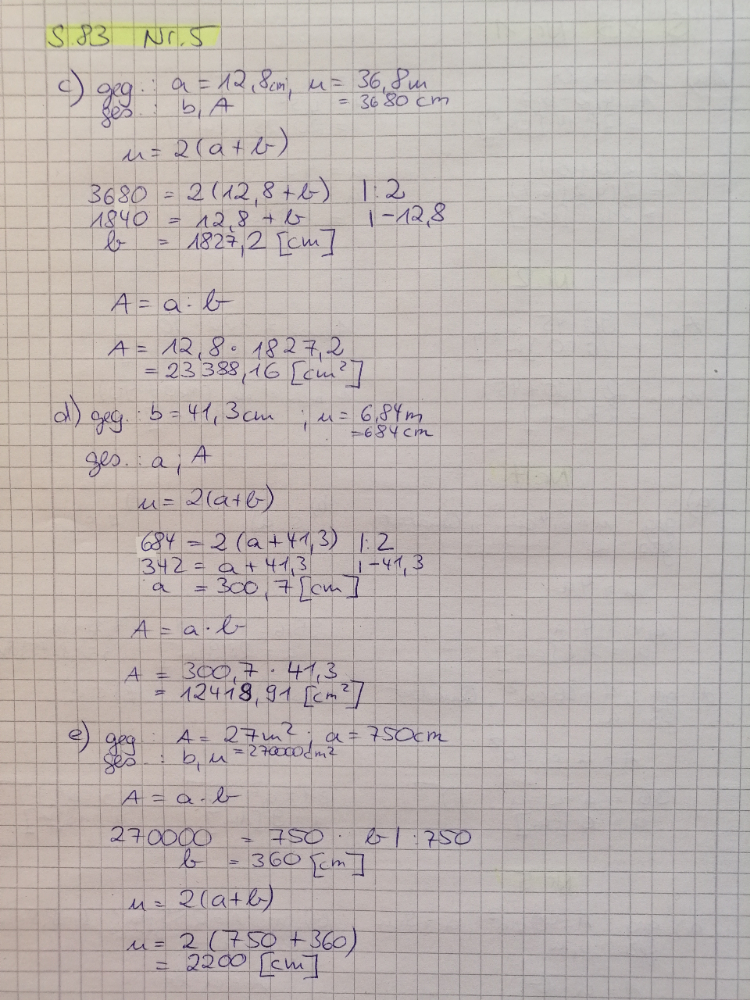 S.83 Nr.5
c) geg.: a = 12,8cm, u = 36,8m
= 3680 cm
ges.: b, A
u = 2(a+b)
3680 = 2(12,8+b) |:2
1840 = 12,8 + b |-12,8
b = 1827,2 [cm]
A = a·b
A = 12,8 · 1827,2
= 23388,16 [cm²]
d) geg.: b = 41,3cm ; u = 6,84m
=684cm
ges.: a ; A
u = 2(a+b)
684 = 2(a+41,3) |:2
342 = a+41,3 |-41,3
a = 300,7 [cm]
A = a·b
A = 300,7 · 41,3
= 12418,91 [cm²]
e) geg.: A = 27m² ; a = 750cm
ges.: b, u =270000cm²
A = a·b
270000 = 750 · b |:750
b = 360 [cm]
u = 2(a+b)
u = 2 (750 + 360)
= 2200 [cm]